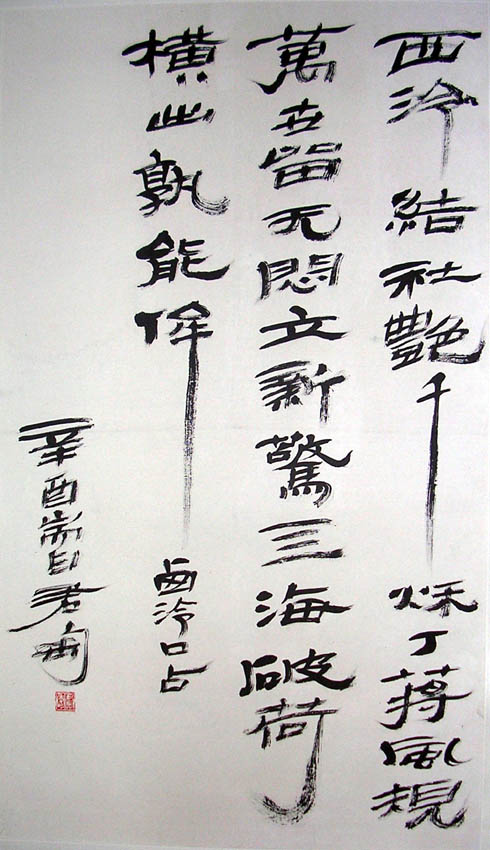 西泠結社艷千秌丁蔣風規
萬世留无悶立新驚三海破荷
橫此孰能侔
西泠口占
辛酉 君匋